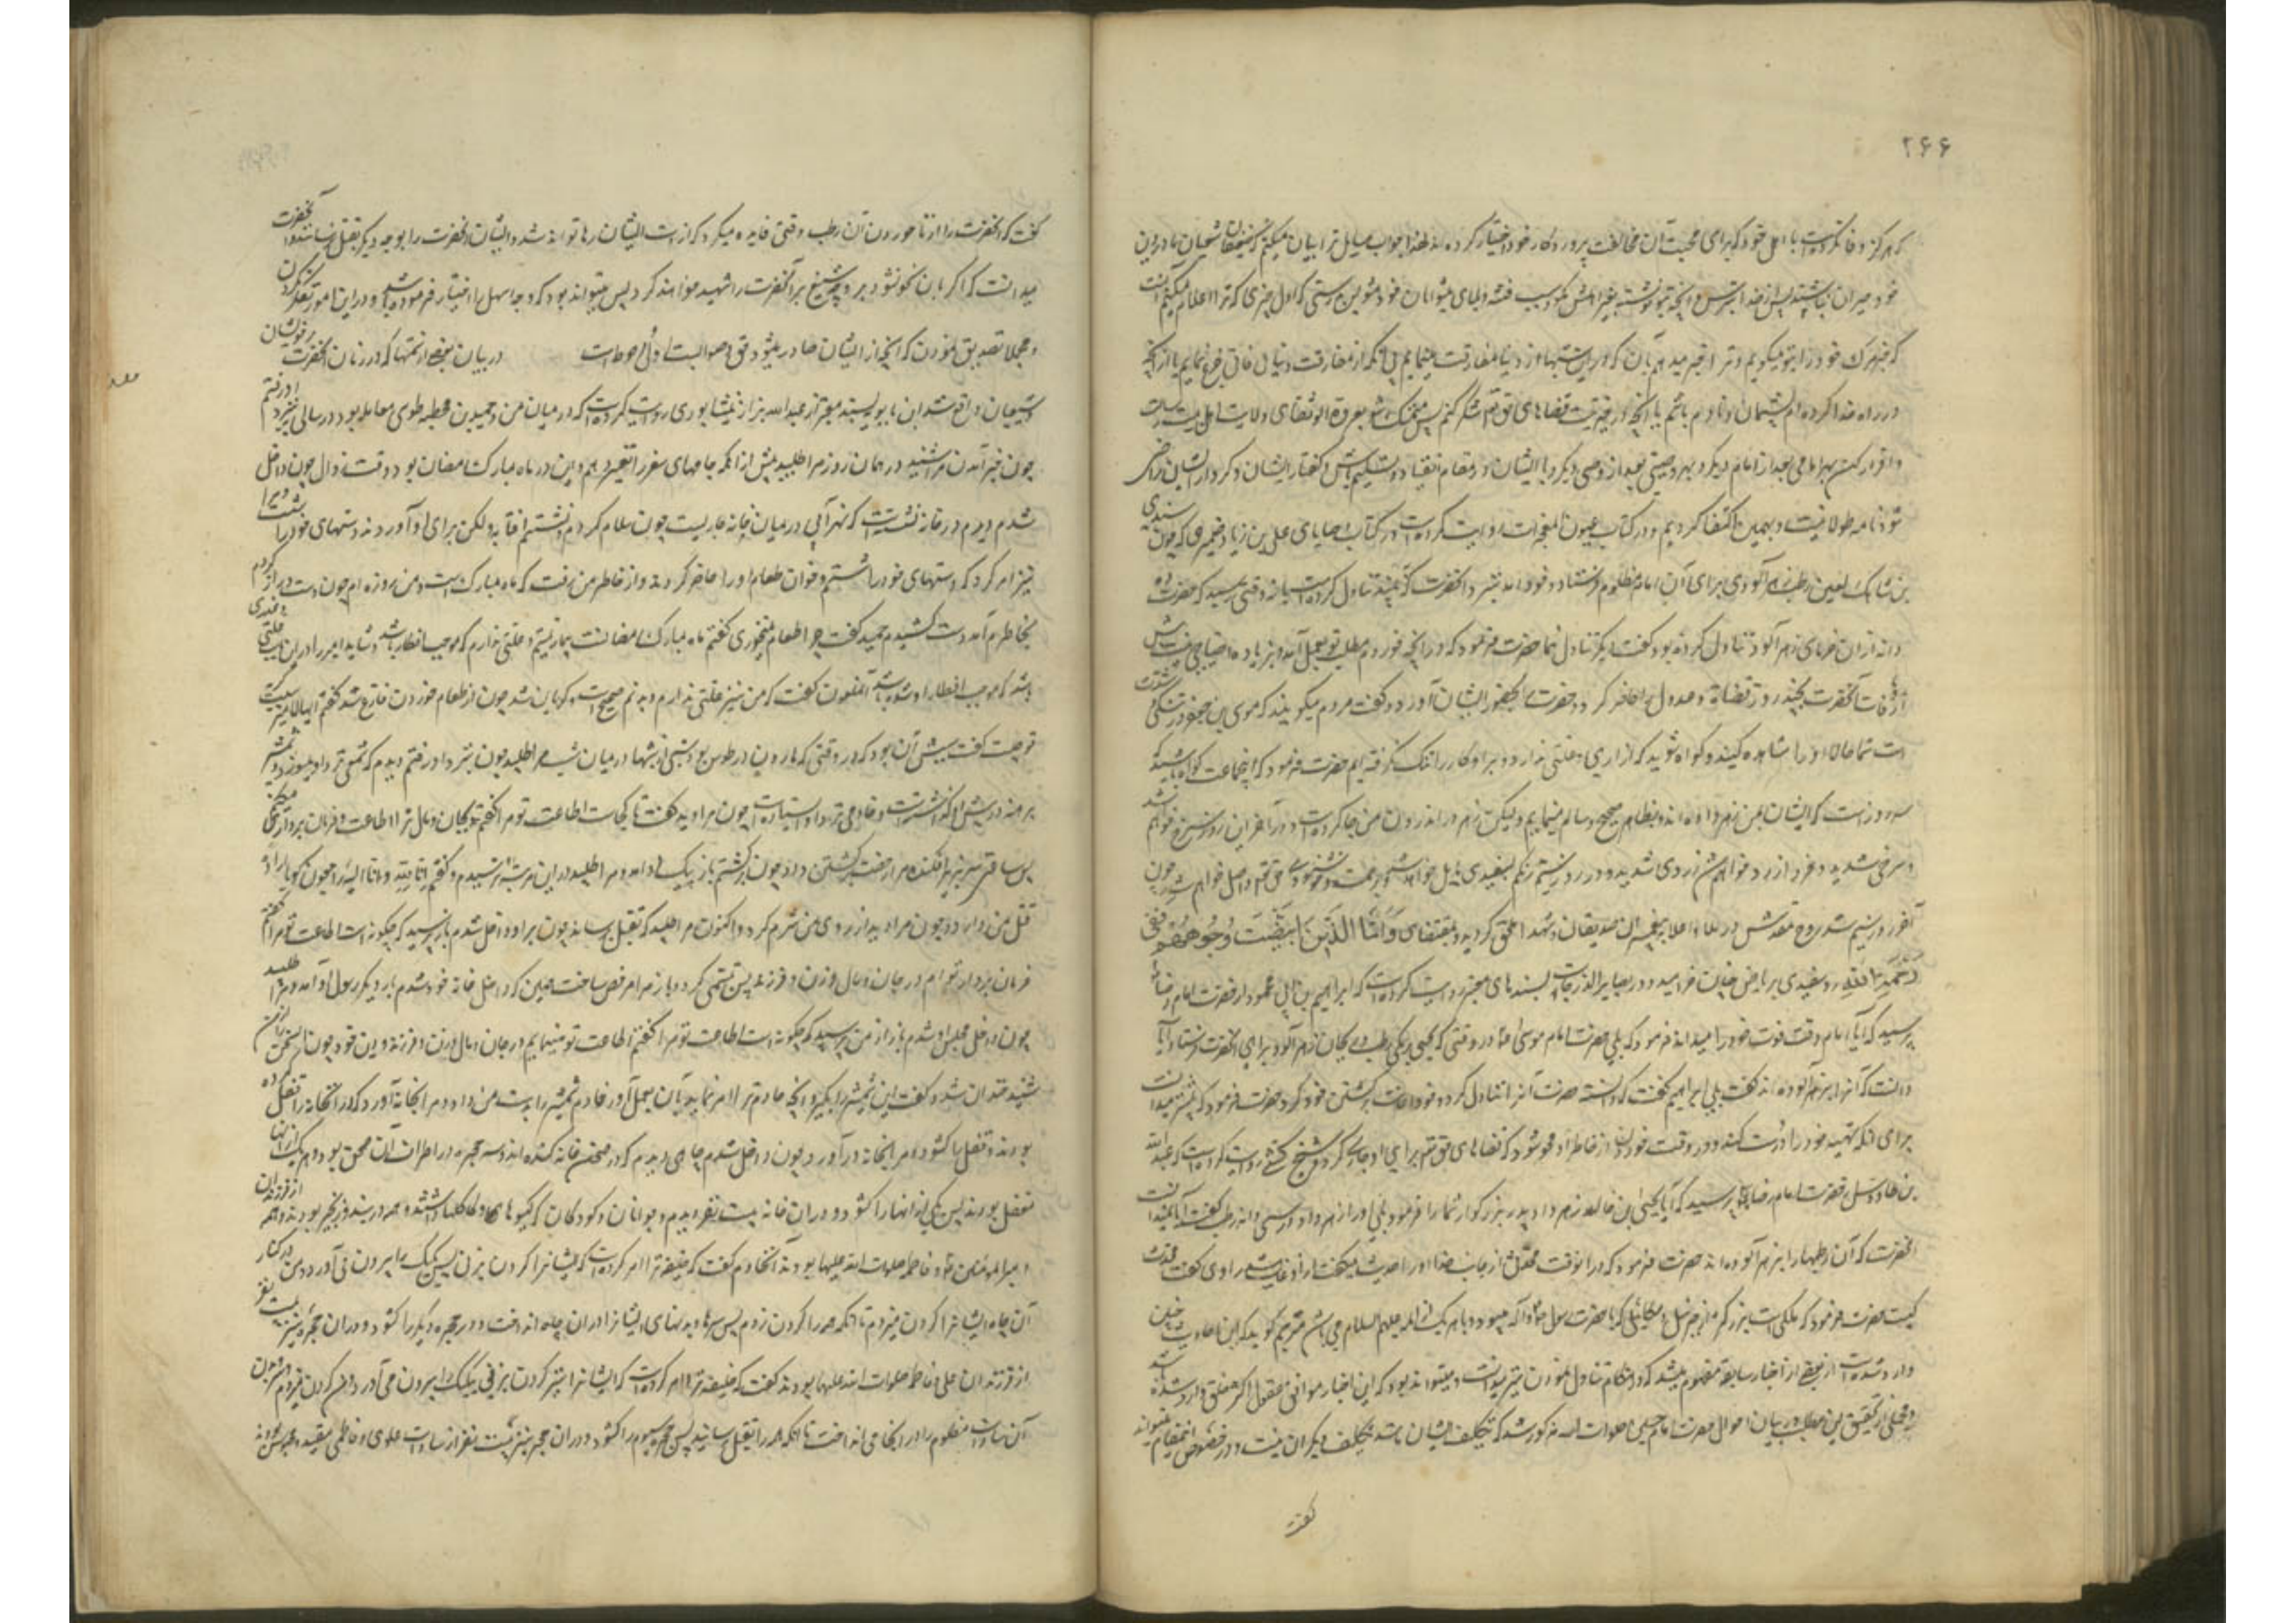 ۲۶۶
که هرگز وفا نکرده است با اهل خود که برای محبت آن مخالفت پروردگار خود اختیار کرده اند لهذا جواب مسایل ترا بیان میکنم که ضعفای شیعیان ما در دین
خود حیران نباشند پس از خدا بترس و آنچه بتو نوشته بغیر اهلش مگو سبب فتنه و بلای پیشوایان خود مشو بدرستی که اول چیزی که ترا اعلام میکنم آنست
که خبر مرک خود را بتو میگویم و ترا خبر میدهم بآن که در این شبها از دنیا مفارقت مینمایم بی آنکه از مفارقت دنیای فانی جزع نمایم یا از آنچه
در راه خدا کرده ام پشیمان و نادم باشم یا آنچه در خیریت قضاهای حق تعالی شک کنم پس متمسک شو بعروة الوثقای ولایت اهل بیت رسالت
و اقرار کن بهر امامی بعد از امام دیگر و بهر وصیی بعد از وصی دیگر و با ایشان در مقام انقیاد و تسلیم باش و گفتار ایشان و کردار ایشان راضی
شو نامه طولانیست و بهمین اکتفا کردیم و در کتاب عیون المعجزات روایت کرده است از کتاب وصایای علی بن زیاد ضمیری که چون سندی
بن شاهک لعین رطب زهرآلودی برای آن امام مظلوم فرستاد و خود آمد نزد آنحضرت که ببیند تناول کرده است یا نه وقتی رسید که حضرت ده
دانه از آن خرمای زهرآلود تناول کرده بود گفت دیگر تناول نما حضرت فرمود که در آنچه خوردم مطلب تو بعمل آمد و بزیاده احتیاجی نیست پس
از وفات آنحضرت بچند روز قضاة و عدول را حاضر کرد و حضرت را بحضور ایشان آورد و گفت مردم میگویند که موسی بن جعفر در تنگی و شدت
است شما حال او را مشاهده کنید و گواه شوید که آزاری و علتی ندارد و بر او کار را تنگ نگرفته ایم حضرت فرمود که ای جماعت گواه باشید که
سه روز است که ایشان بمن زهر داده اند و بظاهر صحیح و سالم مینمایم ولیکن زهر در اندرون من جا کرده است و در آخر این روز سرخ خواهم شد
بسرخی شدید و فردا زرد خواهم شد زردی شدید و در روز سیم رنگم بسفیدی مایل خواهد شد و برحمت و خشنودی حق تعالی واصل خواهم شد چون
آخر روز سیم شد روح مقدسش در ملاء اعلا به پیغمبران و صدیقان و شهدا ملحق گردید و بمقتضای وَأَمَّا الَّذِینَ ابْیَضَّتْ وُجُوهُهُمْ فَفِی
رَحْمَةِ اللهِ رو سفیدی بریاض جنات خرامید و در بصایر الدرجات بسندهای معتبر روایت کرده است که ابراهیم بن ابی محمود از حضرت امام رضا
پرسید که آیا امام وقت فوت خود را میداند فرمود که بلی حضرت امام موسی در وقتی که یحیی برمکی رطب و ریحان زهرآلود برای آنحضرت فرستاد آیا
دانست که آنها را زهر آلوده اند گفت بلی ابراهیم گفت که دانسته حضرت آنرا تناول کرد و خود اعانت بر کشتن خود کرد حضرت فرمود که پیشتر میدانست
برای آنکه تهیه خود را درست کند و در وقت خوردن از خاطر او محو شود که قضاهای حق تعالی برای او جاری گردد و شیخ کشی روایت کرده است که عبدالله
بن طاوس از حضرت امام رضا پرسید که آیا یحیی بن خالد زهر داد پدر بزرگوار شما را فرمود بلی او را زهر داد در سی دانه رطب گفت آیا نمیدانست
آنحضرت که آن رطبها را زهر آلوده اند حضرت فرمود که در آنوقت محدث از جانب خدا او را حدیث میگفت از او غایب شد راوی گفت محدث
کیست حضرت فرمود که ملکی است بزرگتر از جبرئیل و میکائیل که با حضرت رسول میبود و با هر یک از ائمه علیهم السلام می باشد مترجم گوید که این احادیث چنین
وارد شده است از بعضی از اخبار سابقه مفهوم میشد که در هنگام تناول نمودن نیز میدانست و میتواند بود که این اخبار موافق عقول اکثر خلق وارد شده باشد
و مجملی از تحقیق این مطلب در بیان احوال حضرت امام حسین صلوات الله مذکور شد که تکلیف ایشان مانند تکلیف دیگران نیست و در خصوص این مقام میتواند
گفت
گفت که آنحضرت را از ناخوردن آن رطب وقتی فایده میکرد که از دست ایشان رها تواند شد و ایشان آنحضرت را بوجه دیگر بقتل نرسانند و آنحضرت
میدانست که اگر بآن نحو نشود بر وجه شنیع تر آنحضرت را شهید خواهند کرد پس میتواند بود که وجه اسهل را اختیار فرموده باشد و در این امور تفکر نکردن
و مجملا تصدیق نمودن که آنچه از ایشان صادر میشود حق و صوابست اولی و احوطست در بیان بعضی از ستمها که در زمان آنحضرت بر خویشان
و شیعیان واقع شد ابن بابویه بسند معتبر از عبدالله بزاز نیشابوری روایت کرده است که در میان من و حمید بن قحطبه طوسی معامله بود در سالی بنزد او رفتم
چون خبر آمدن مرا شنید در همان روز مرا طلبید پیش از آنکه جامهای سفر را تغییر دهم و این در ماه مبارک رمضان بود در وقت زوال چون داخل
شدم دیدم در خانه نشسته است که نهر آبی در میان خانه جاریست چون سلام کردم و نشستم آفتابه و لکن برای او آوردند و دستهای خود را شست و مرا
نیز امر کرد که دستهای خود را شستم و خوان طعام او را حاضر کردند و از خاطر من رفت که ماه مبارک است و من روزه ام چون دست دراز کردم
بخاطرم آمد دست کشیدم حمید گفت چرا طعام نمیخوری گفتم ماه مبارک رمضانست بیمار نیستم و علتی ندارم که موجب افطار باشد و شاید امیر را در این باب علتی و عذری
باشد که موجب افطار او شده باشد آنملعون گفت که من نیز علتی ندارم و بدنم صحیح است و گریان شد چون از طعام خوردن فارغ شد گفتم ایها الامیر سبب گریه
تو چیست گفت سببش آن بود که در وقتی که هارون در طوس بود شبی از شبها در میان شب مرا طلبید چون بنزد او رفتم دیدم که شمعی نزد او میسوزد و شمشیر
برهنه در پیش او گذاشته است و خادمی نزد او ایستاده است چون مرا دید گفت تا کجاست اطاعت تو مرا گفتم بجان و مال ترا اطاعت و فرمان بردارم
پس ساعتی سر بزیر افکند و مرا رخصت برگشتن داد چون برگشتم باز پیک او آمد و مرا طلبید در این مرتبه ترسیدم و گفتم انا لله و انا الیه راجعون گویا اراده
قتل من دارد و چون مرا دید از روی من شرم کرد و اکنون مرا طلبید که بقتل رساند چون بر او داخل شدم باز پرسید که چگونه است اطاعت تو مرا گفتم
فرمان بردار توام در جان و مال و زن و فرزند پس تبسمی کرد و باز مرا مرخص ساخت همین که داخل خانه خود شدم بار دیگر رسول او آمد و مرا طلبید
چون داخل مجلس او شدم باز از من پرسید که چگونه است اطاعت تو مرا گفتم اطاعت تو مینمایم در جان و مال و زن و فرزند و دین خود چون این سخن را از من
شنید خندان شد و گفت این شمشیر را بگیر و آنچه خادم ترا امر نماید بآن بعمل آور خادم شمشیر را بدست من داد و مرا بخانه آورد که در آن خانه را قفل کرده
بودند و قفل را کشود و مرا بخانه در آورد چون داخل شدم چاهی دیدم که در صحن خانه کنده اند و سه حجره در اطراف آن صحن بود و هر یک از آنها
مقفل بود پس یکی از آنها را کشود در آن خانه بیست نفر دیدم و جوانان و کودکان که گیسوها و کاکلها داشتند و همه در بند و زنجیر بودند و همه از فرزندان
امیرالمؤمنین و فاطمه صلوات الله علیهما بودند آنخادم گفت که خلیفه ترا امر کرده است که ایشانرا گردن بزنی پس یک یک را بیرون می آورد و من در کنار
آن چاه ایشانرا گردن میزدم تا آنکه همه را گردن زدم پس سرها و بدنهای ایشانرا در آن چاه انداخت و در حجره دیگر را کشود و در آن حجره نیز بیست نفر
از فرزندان علی و فاطمه صلوات الله علیهما بودند گفت که خلیفه ترا امر کرده است که ایشانرا نیز گردن بزنی یک یک را بیرون می آورد و من گردن میزدم
آن سادات مظلوم را در آنچاه می انداخت تا آنکه همه را بقتل رسانید پس حجره سیوم را کشود و در آن حجره نیز بیست نفر از سادات علوی و فاطمی مقید و محبوس بودند